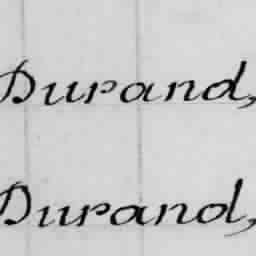 Durand,
Durand,